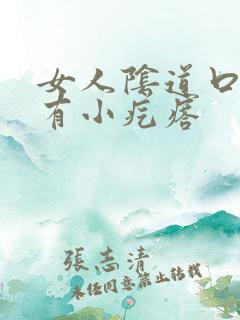 女人陰道口
有小疙瘩
張志清
未经同意禁止转载